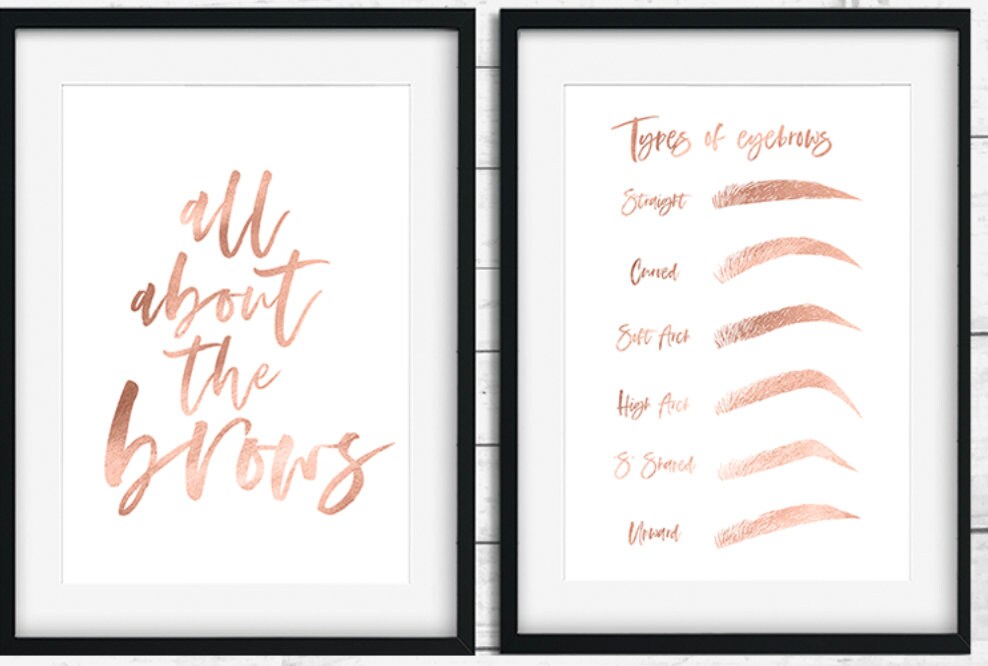 all
about
the
brows
Types of eyebrows
Straight
Curved
Soft Arch
High Arch
S' Shaped
Upward